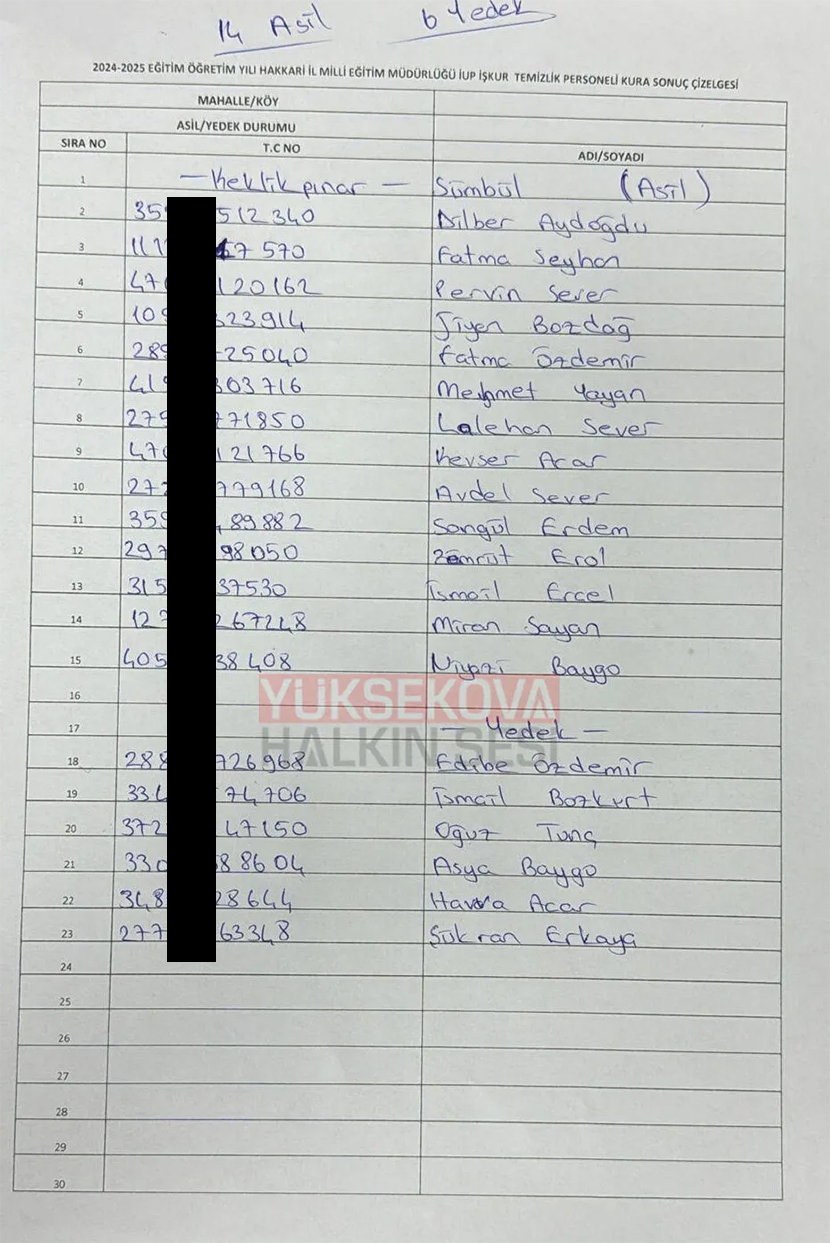 14 Asil 6 Yedek
2024-2025 EĞİTİM ÖĞRETİM YILI HAKKARİ İL MİLLİ EĞİTİM MÜDÜRLÜĞÜ İUP İŞKUR TEMİZLİK PERSONELİ KURA SONUÇ ÇİZELGESİ
MAHALLE/KÖY
ASİL/YEDEK DURUMU
SIRA NO T.C NO ADI/SOYADI
1 - Keklikpınar - Sümbül (Asil)
2 35 512340 Dilber Aydoğdu
3 111 67570 Fatma Seyhan
4 470 120162 Pervin Sever
5 109 323914 Jiyen Bozdağ
6 289 25040 Fatma Özdemir
7 419 303716 Mehmet Yayan
8 279 771850 Lalehan Sever
9 470 121766 Kevser Acar
10 277 779168 Avdel Sever
11 359 89882 Songül Erdem
12 297 98050 Zümrüt Erol
13 315 37530 İsmail Ercel
14 127 267248 Miran Sayan
15 405 38408 Niyazi Baygo
16
YÜKSEKOVA
17 - Yedek -
HALKIN SESİ
18 288 726968 Edibe Özdemir
19 334 74706 İsmail Bozkurt
20 372 47150 Oğuz Tunç
21 330 88604 Asya Baygo
22 348 28644 Havva Acar
23 277 63348 Şükran Erkaya
24
25
26
27
28
29
30